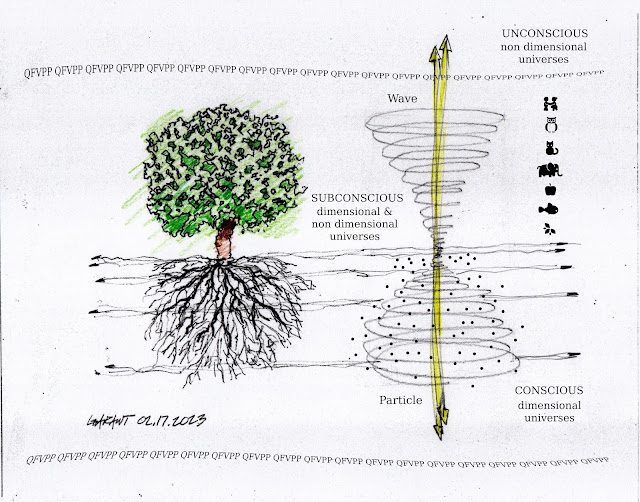 UNCONSCIOUS
non dimensional
universes
QFVPP QFVPP QFVPP QFVPP QFVPP QFVPP QFVPP QFVPP QFVPP QFVPP QFVPP QFVPP QFVPP QFVPP QFVPP QFVPP QFVPP QFVPP QFVPP
Wave
SUBCONSCIOUS
dimensional &
non dimensional
universes
Particle
CONSCIOUS
dimensional
universes
02.17.2023
QFVPP QFVPP QFVPP QFVPP QFVPP QFVPP QFVPP QFVPP QFVPP QFVPP QFVPP QFVPP QFVPP QFVPP QFVPP QFVPP QFVPP QFVPP QFVPP